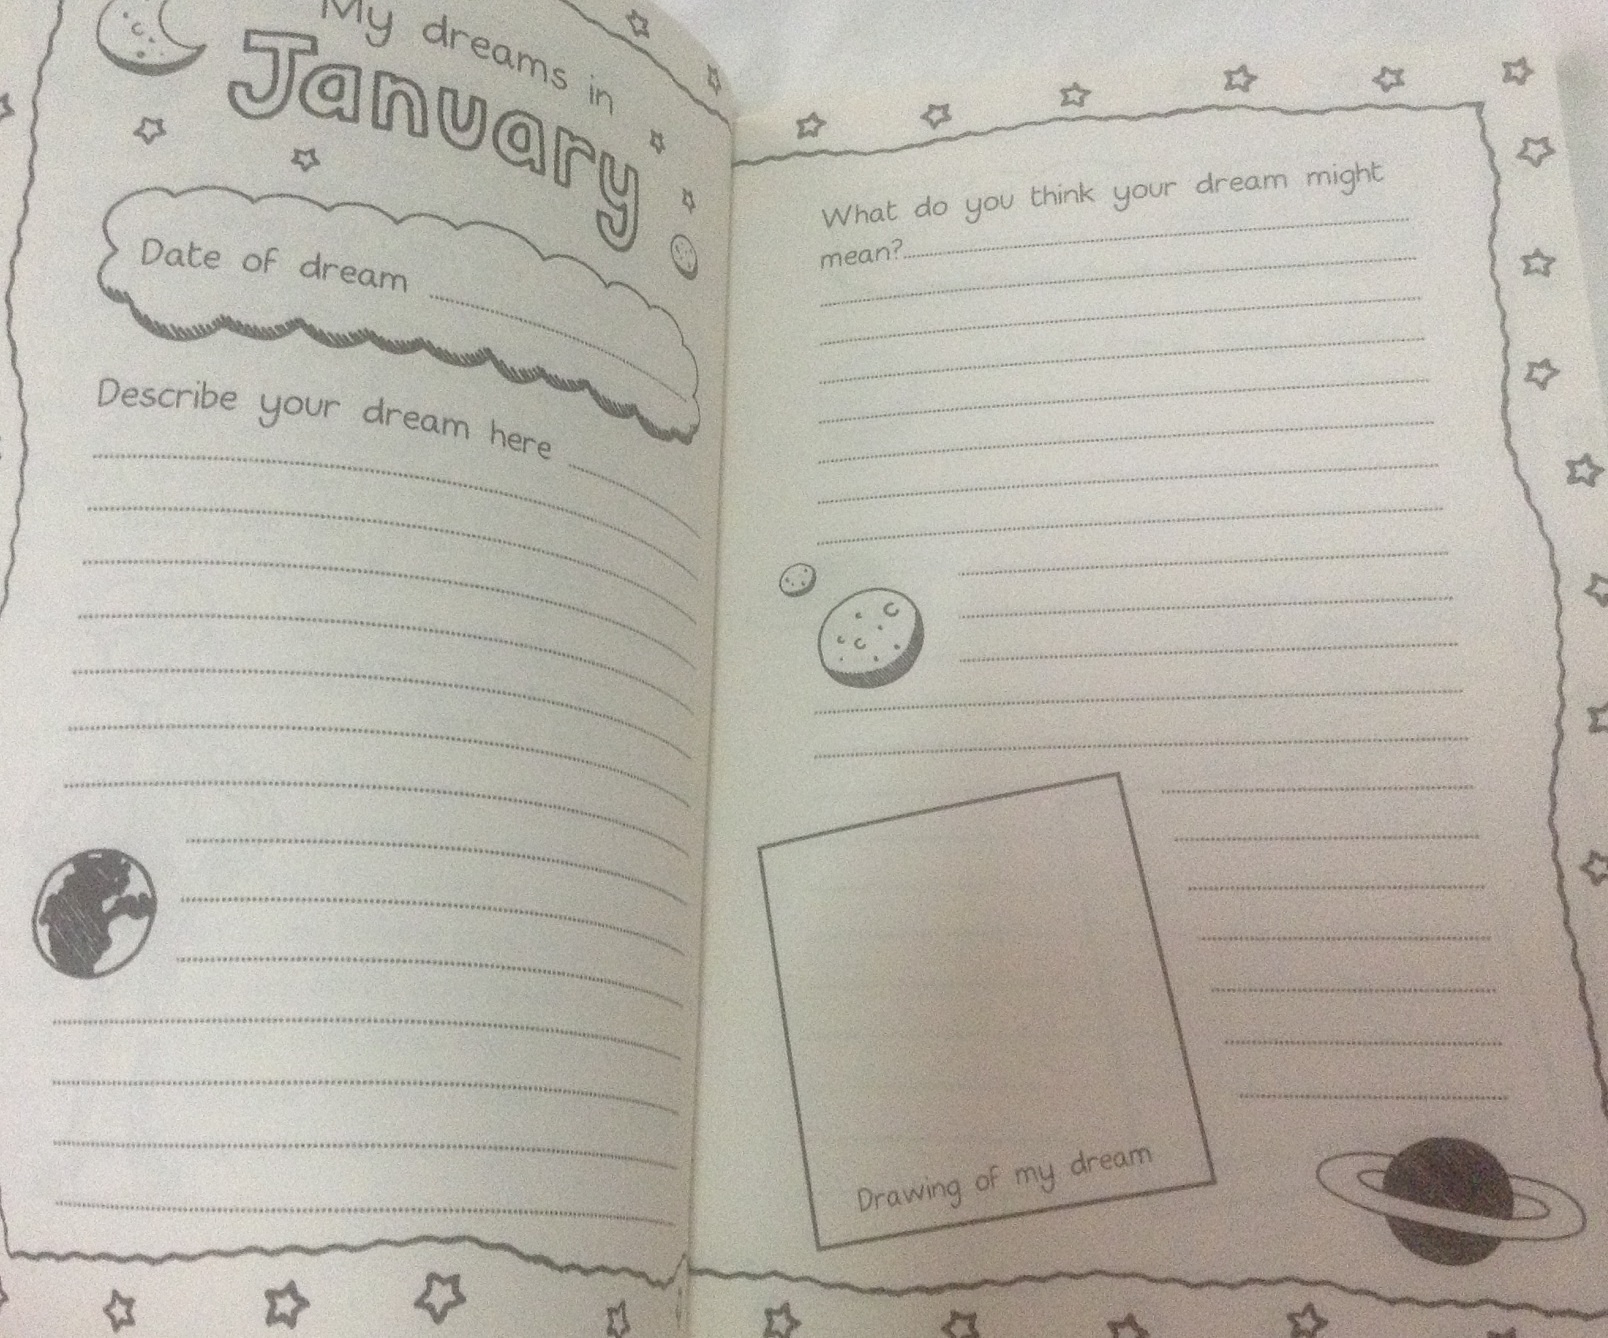 My dreams in
January
Date of dream
Describe your dream here
What do you think your dream might
mean?
Drawing of my dream